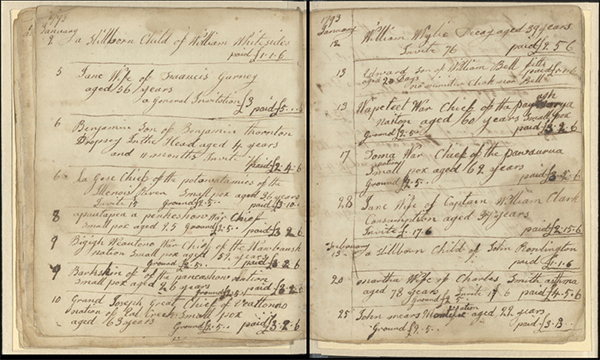 1793
January
2 a Stillborn Child of William Whitesides
paid £1..1..6
5 Jane Wife of Francis Gurney
aged 56 years
a General Invitation £3 paid £3..
6 Benjamin Son of Benjamin Thornton
Dropsey In the Head aged 4 years
and months Invite paid £2.4.6
6 La Gese Chief of the potowatamies of the
Illenois River Small pox aged 26 years
Invite 18 Ground £2.5.. paid £3.10..
8 apautapea a penkeshaw Chief
small pox aged 25 Ground £2.5.. paid £3 2 6
9 Bigigh Weantono War Chief of the
nation Small pox aged 57 years
Ground £2.5.. paid £3 2 6
9 Barkskin of the nation
small pox aged 26 years
Ground £2.5.. paid £3 2 6
10 Grand Joseph Great Chief of
nation of Red Creek Small pox
aged 63 years Ground £2.5.. paid £3.2.6
1793
January
12 William Wylie Decay aged 59 years
Invite 76 paid £2 5 6
13 Edward Son of William Bell fitts
aged 20 Days paid
no Invitation
13 Wapeteet War Chief of the
Nation aged 60 years Small pox
Ground £2.5.. paid £3.2.6
17 Toma War Chief of the
nation
Small pox aged 62 years
Ground £2.5.. paid £3.2.6
28 Jane Wife of Captain William Clark
Consumption aged 34 years
Invite £.17.6 paid £2.15.6
February
13 a Stillborn Child of John
paid £.1.6
20 martha Wife of Charles Smith asthma
aged 78 years Invite 17 6 paid £4.5.6
Ground £2.5
25 John mears aged 22 years
Ground £2.5.. paid £3.3..